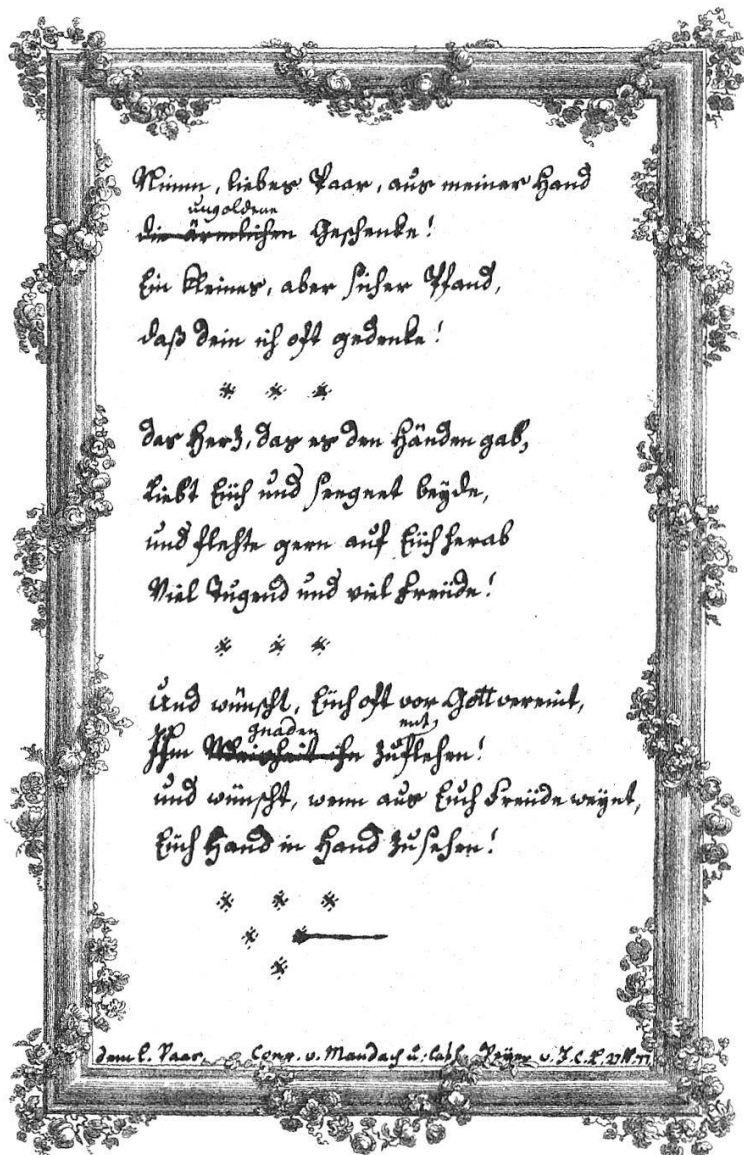 Nimm, liebes Paar, aus meiner Hand
ungoldene
die ärmlichen Geschenke!
Ein kleines, aber sicher Pfand,
daß dein ich oft gedenke!
* * *
das Herz, das es den Händen gab,
Liebt Eüch und seegnet beÿde,
und flehte gern auf Eüch herab
Viel Tugend und viel Freüde!
* * *
Und wünscht, Eüch oft vor Gott vereint,
gnaden ent
Ihm Weisheit ihn zuflehen!
und wünscht, wenn aus Euch Freüde weÿnt,
Eüch Hand in Hand zusehen!
* * *
* *
*
dem l. Paar Conr. v. Mandach u. Cath. Peÿer v. J. C. L.